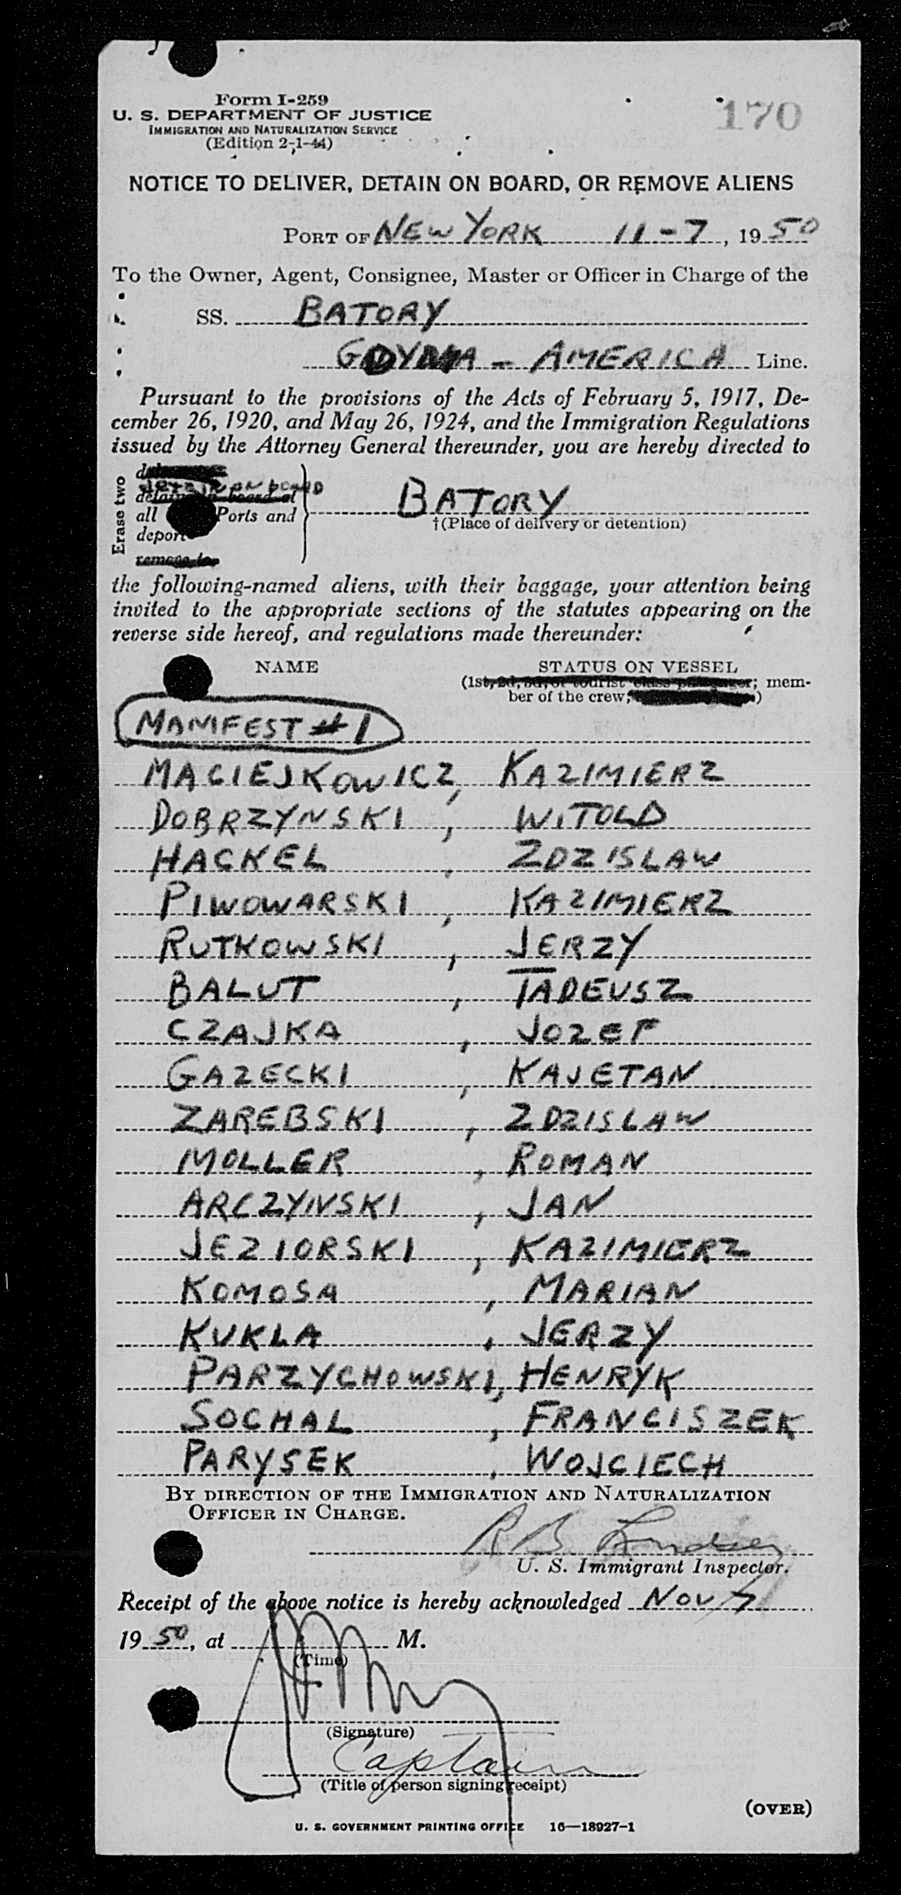 170
Form I-259
U. S. DEPARTMENT OF JUSTICE
IMMIGRATION AND NATURALIZATION SERVICE
(Edition 2-1-44)
NOTICE TO DELIVER, DETAIN ON BOARD, OR REMOVE ALIENS
PORT OF NEW YORK 11-7, 1950
To the Owner, Agent, Consignee, Master or Officer in Charge of the
SS. BATORY
GDYNIA - AMERICA Line.
Pursuant to the provisions of the Acts of February 5, 1917, De-
cember 26, 1920, and May 26, 1924, and the Immigration Regulations
issued by the Attorney General thereunder, you are hereby directed to
Erase two
DETAIN ON BOARD
detain on board at
all Ports and
deport
remove to
BATORY
†(Place of delivery or detention)
the following-named aliens, with their baggage, your attention being
invited to the appropriate sections of the statutes appearing on the
reverse side hereof, and regulations made thereunder:
NAME STATUS ON VESSEL
(1st, 2d, 3d, or tourist class passenger; mem-
ber of the crew; )
MANIFEST #1
MACIEJKOWICZ, KAZIMIERZ
DOBRZYNSKI, WITOLD
HACKEL, ZDZISLAW
PIWOWARSKI, KAZIMIERZ
RUTKOWSKI, JERZY
BALUT, TADEUSZ
CZAJKA, JOZEF
GAZECKI, KAJETAN
ZAREBSKI, ZDZISLAW
MOLLER, ROMAN
ARCZYNSKI, JAN
JEZIORSKI, KAZIMIERZ
KOMOSA, MARIAN
KUKLA, JERZY
PARZYCHOWSKI, HENRYK
SOCHAL, FRANCISZEK
PARYSEK, WOJCIECH
BY DIRECTION OF THE IMMIGRATION AND NATURALIZATION
OFFICER IN CHARGE.
R B Lindsey
U. S. Immigrant Inspector.
Receipt of the above notice is hereby acknowledged Nov 7
1950, at M.
(Time)
(Signature)
Captain
(Title of person signing receipt)
(OVER)
U. S. GOVERNMENT PRINTING OFFICE 16—18927-1